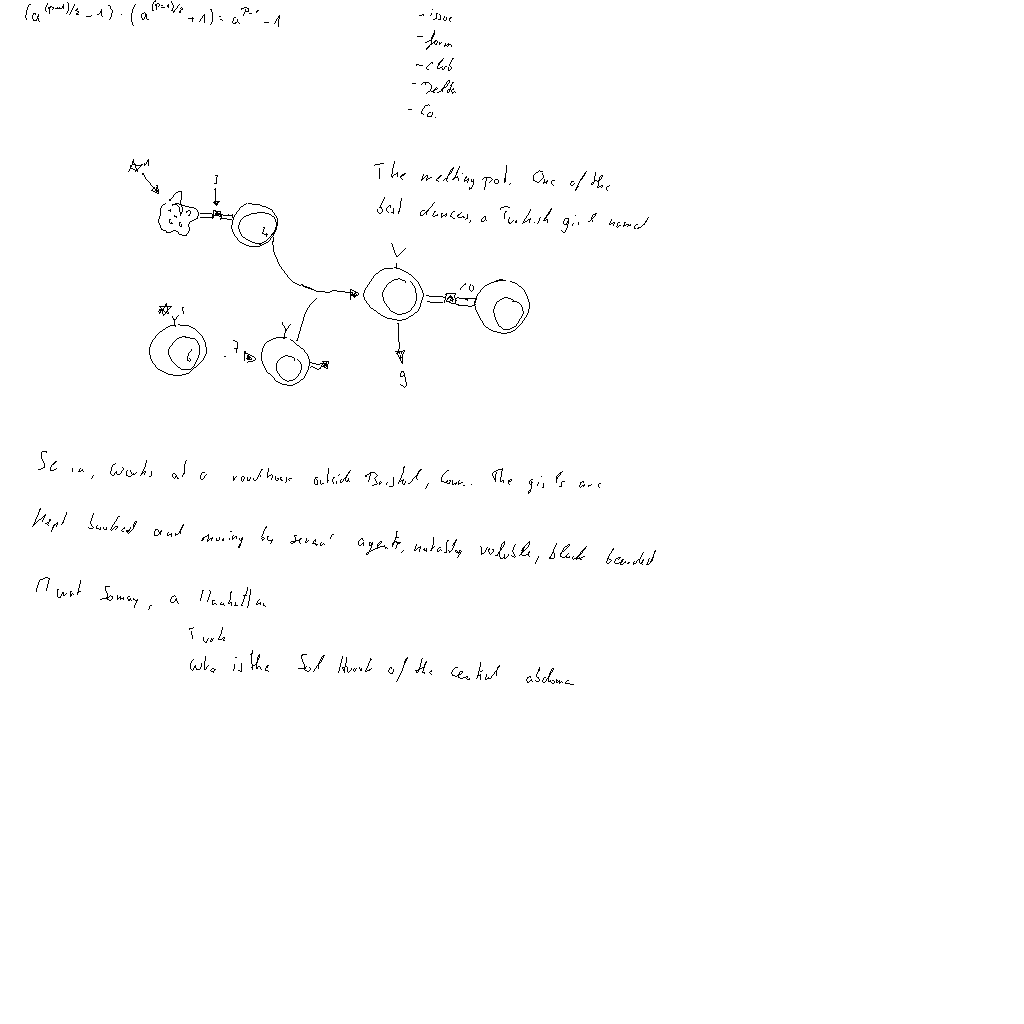 (a^(p-1)/2 - 1) · (a^(p-1)/2 + 1) = a^p-1 - 1
- issue
- form
- club
- Delta
- Co.
The melting pot. One of the
best dancers, a Turkish girl named
1
3
4
V
10
1
Y
6
7
Y
9
works at a roadhouse outside Bristol, Conn. The girls are
kept booked and moving by several agents, notably voluble, black bearded
Murat Somay, a Manhattan
Turk
who is the Sol Hurok of the central abdomen